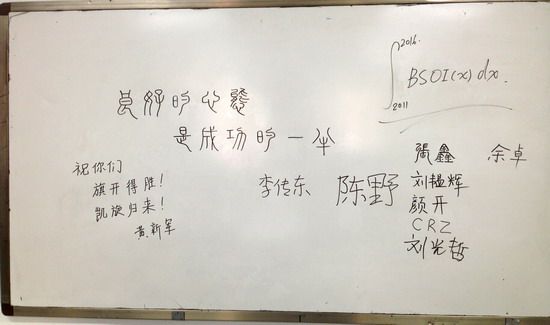 ∫₂₀₁₁²⁰¹⁶ BSOI(x)dx.
良好的心态
是成功的一半
祝你们
旗开得胜!
凯旋归来!
黄新军
李传东
陈野
张鑫 余卓
刘韫辉
颜开
CRZ
刘光哲